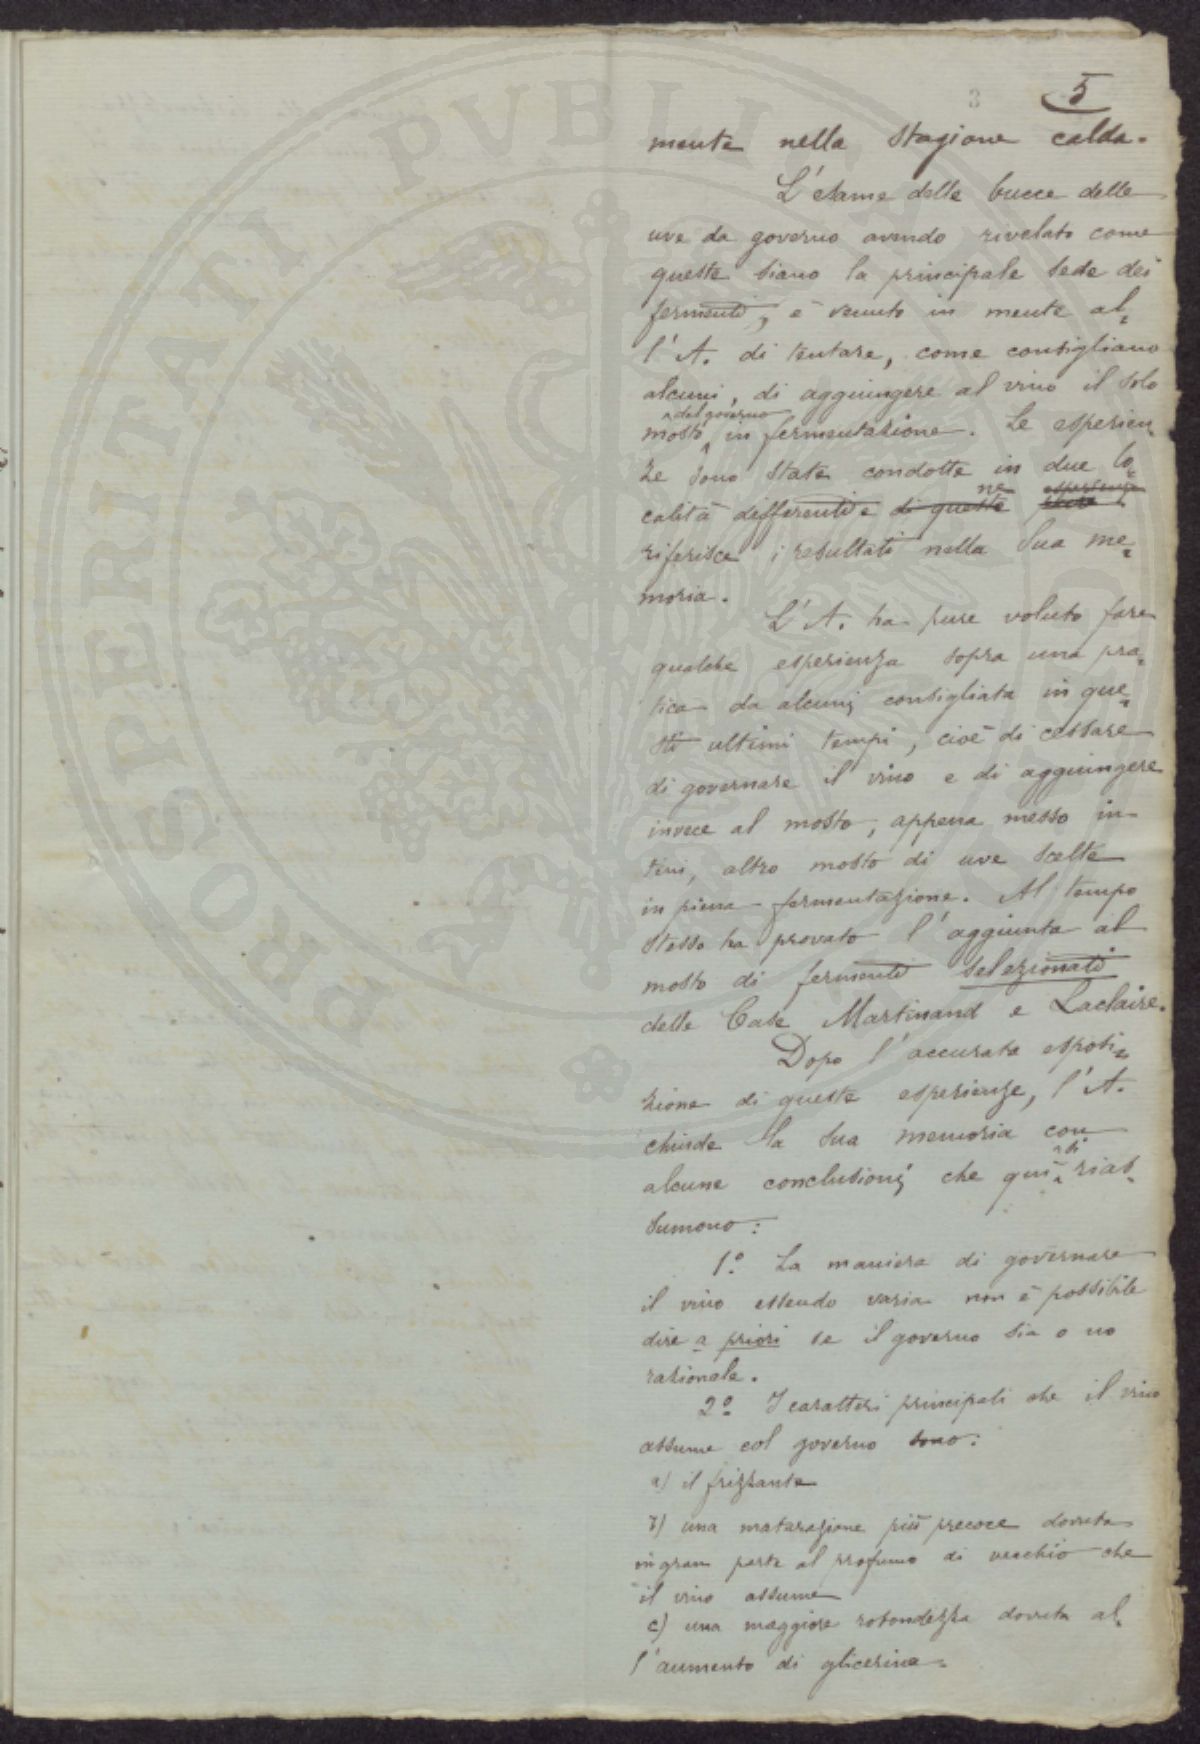 3
5
mente nella stagione calda.
L'esame delle bucce delle
uve da governo avendo rivelato come
queste siano la principale sede dei
fermenti, è venuto in mente al=
l'A. di tentare, come consigliano
alcuni, di aggiungere al vino il solo
del governo
mosto in fermentazione. Le esperien=
ze sono state condotte in due lo=
calità differenti e di queste ne esperienze
riferisce i resultati nella sua me=
moria.
L'A. ha pure voluto fare
qualche esperienza sopra una pra=
tica da alcuni consigliata in que=
sti ultimi tempi, cioè di cessare
di governare il vino e di aggiungere
invece al mosto, appena messo in
tini, altro mosto di uve scelte
in piena fermentazione. Al tempo
stesso ha provato l'aggiunta al
mosto di fermenti selezionati
delle Case Martinand e Laclaire.
Dopo l'accurata esposi=
zione di queste esperienze, l'A.
chiude la sua memoria con
alcune conclusioni che qui si rias=
sumono:
1.º La maniera di governare
il vino essendo varia non è possibile
dire a priori se il governo sia o no
razionale.
2º I caratteri principali che il vino
assume col governo sono:
a) il frizzante
b) una maturazione più precoce dovuta
in gran parte al profumo di vecchio che
il vino assume
c) una maggiore rotondezza dovuta al=
l'aumento di glicerina.
PROSPERITATI PVBLICAE